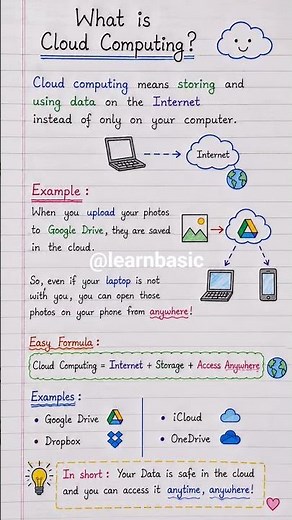 What is
Cloud Computing?
Cloud computing means storing and
using data on the Internet
instead of only on your computer.
Internet
Example :
When you upload your photos
to Google Drive, they are saved
in the cloud.
@learnbasic
So, even if your laptop is not
with you, you can open those
photos on your phone from anywhere!
Easy Formula :
Cloud Computing = Internet + Storage + Access Anywhere
Examples :
• Google Drive
• Dropbox
• iCloud
• OneDrive
In short : Your Data is safe in the cloud
and you can access it anytime, anywhere!